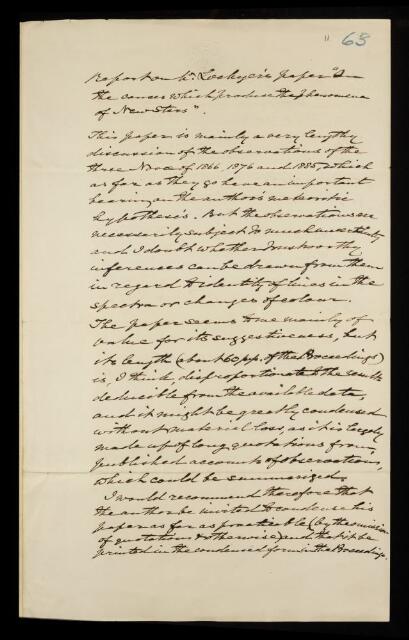 11 63
Report on Mr. Lockyer's paper "On
the causes which produce the phenomena
of New Stars".
This paper is mainly a very lengthy
discussion of the observations of the
three Novæ of 1866, 1876 and 1885, which
as far as they go have an important
bearing on the author's meteoritic
hypothesis. But the observations are
necessarily subject to much uncertainty
and I doubt whether trustworthy
inferences can be drawn from them
in regard to identity of lines in the
spectra or changes of colour.
The paper seems to me mainly of
value for its suggestiveness, but
its length (about 60 pp. of the Proceedings)
is, I think, disproportionate to the results
deducible from the available data,
and it might be greatly condensed
without material loss, as it is largely
made up of long quotations from
published accounts of observation,
which could be summarized.
I would recommend therefore that
the author be invited to condense his
paper as far as practicable (by the omission
of quotations & otherwise) and that it be
printed in the condensed form in the Proceedings.